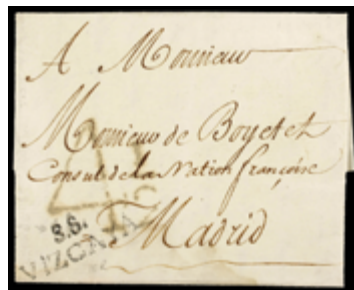 A Monsieur
Monsieur de Boyetet
Consul de la Nation françoise
Madrid
S.S.
VIZCAYA